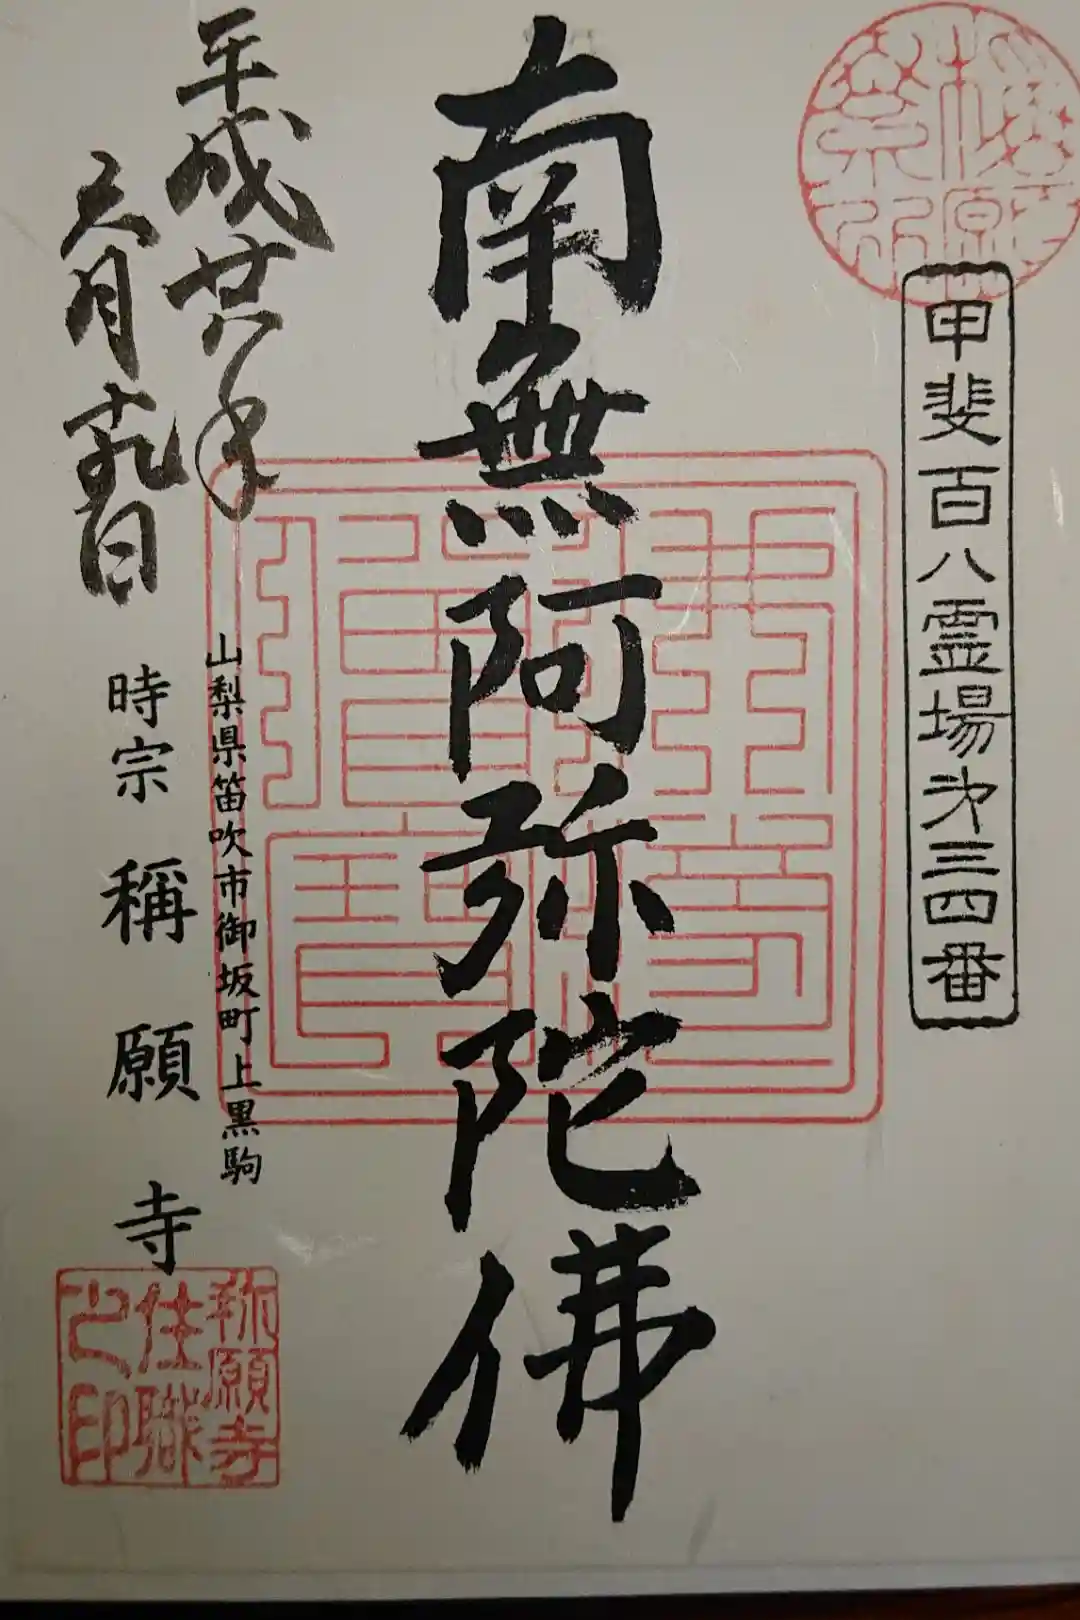 甲斐百八霊場第三四番
南無阿弥陀佛
山梨県笛吹市御坂町上黒駒
時宗 稱願寺
平成廿八年
五月十九日
称願寺
住職
之印